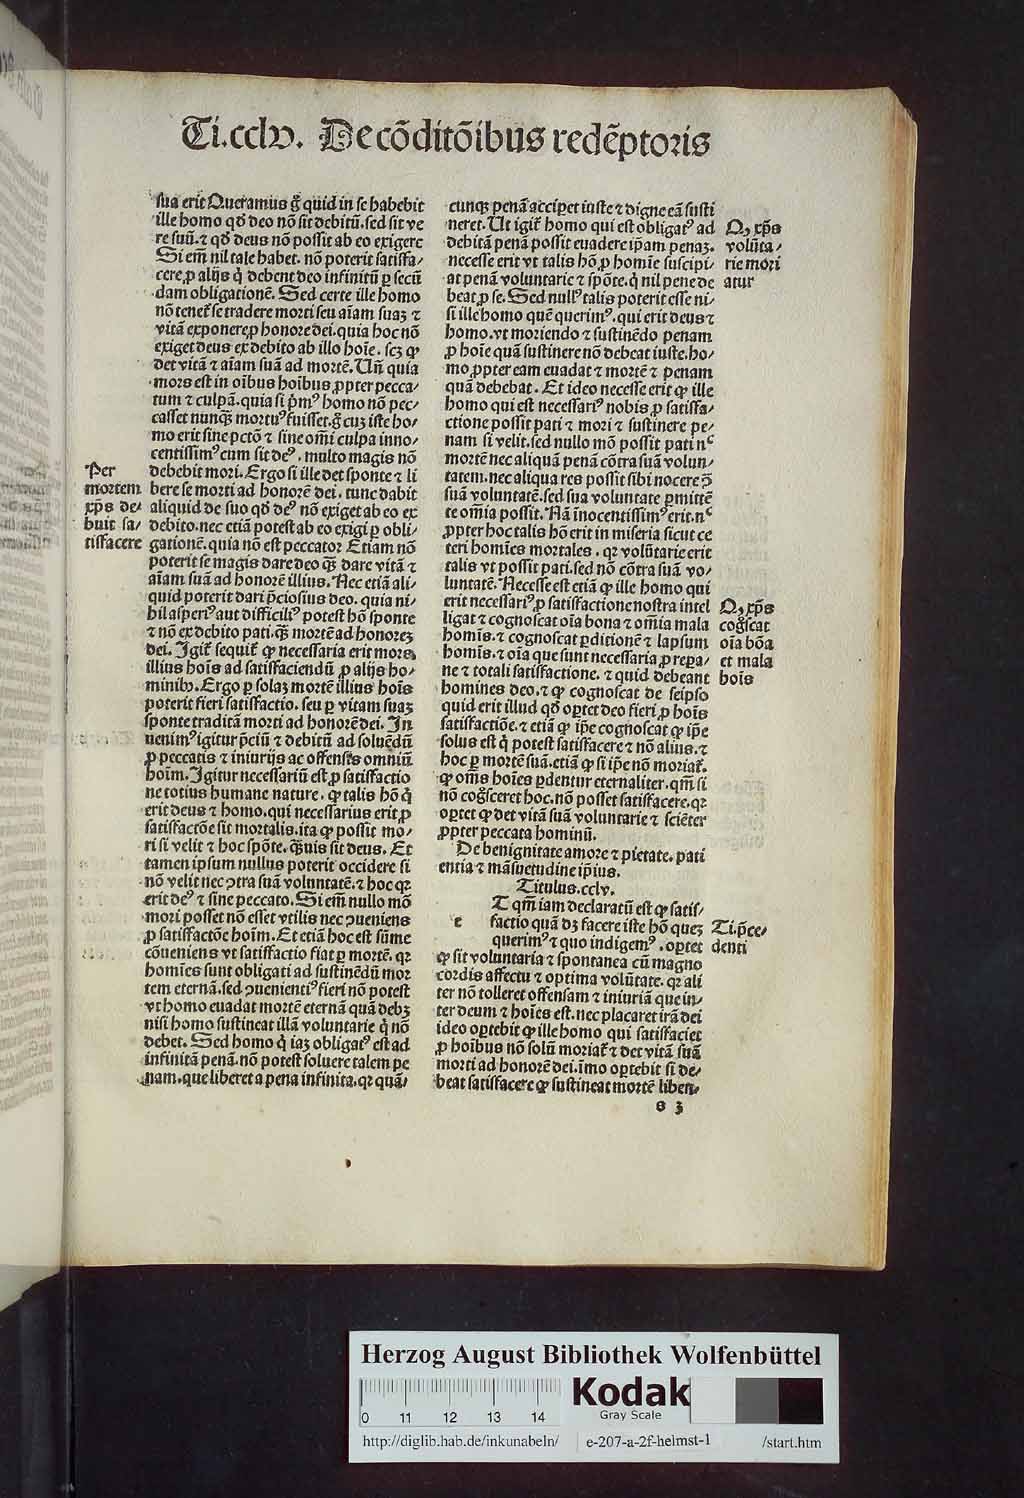 Ti.cclv. De cōditōibus redēptoris
sua erit Queramus gͦ quid in se habebit
ille homo qd̄ deo nō sit debitū. sed sit ve
re suū. ⁊ qd̄ deus nō possit ab eo exigere
Si em̄ nil tale habet. nō poterit satisfa/
cere ꝓ alijs q̇ debent deo infinitū ꝑ secū
dam obligationē. Sed certe ille homo
nō tenet᷑ se tradere morti seu aīam suaꝫ ⁊
vitā exponere ꝓ honore dei. quia hoc nō
exiget deus ex debito ab illo hoīe. scꝫ ꝙ
det vitā ⁊ aīam suā ad mortē. Un̄ quia
mors est in oībus hoībus ꝓpter pecca/
tum ⁊ culpā. quia si p̄mꝰ homo nō pec/
casset nunqꝫ mortuꝰ fuisset. gͦ cuꝫ iste ho/
mo erit sine pctō ⁊ sine om̄i culpa inno/
centissimꝰ cum sit deꝰ. multo magis nō
debebit mori. Ergo si ille det sponte ⁊ li
bere se morti ad honorē dei. tunc dabit
aliquid de suo qd̄ deꝰ nō exiget ab eo ex
debito. nec etiā potest ab eo exigi ꝑ obli/
gationē. quia nō est peccator Etiam nō
poterit se magis dare deo qꝫ dare vitā ⁊
aīam suā ad honorē illius. Nec etiā ali/
quid poterit dari p̄ciosius deo. quia ni/
hil asperiꝰ aut difficiliꝰ potest hō sponte
⁊ nō ex debito pati. qꝫ mortē ad honoreꝫ
dei. Igit᷑ sequit᷑ ꝙ necessaria erit mors
illius hoīs ad satisfaciendū ꝓ alijs ho/
minibꝰ. Ergo ꝑ solaꝫ mortē illius hoīs
poterit fieri satisfactio. seu ꝑ vitam suaꝫ
sponte traditā morti ad honorē dei. In
uenimꝰ igitur p̄ciū ⁊ debitū ad soluēdū
ꝓ peccatis ⁊ iniurijs ac offensis omniū
hoīm. Igitur necessariū est ꝓ satisfactio
ne totius humane nature. ꝙ talis hō q̇
erit deus ⁊ homo. qui necessarius erit ꝓ
satisfactōe sit mortalis. ita ꝙ possit mo/
ri si velit ⁊ hoc spōte. qꝫuis sit deus. Et
tamen ipsum nullus poterit occidere si
nō velit nec ꝯtra suā voluntatē. ⁊ hoc qꝛ
erit deꝰ ⁊ sine peccato. Si em̄ nullo mō
mori posset nō esset vtilis nec ꝯueniens
ꝓ satisfactōe hoīm. Et etiā hoc est sūme
cōueniens vt satisfactio fiat ꝑ mortē. qꝛ
homīes sunt obligati ad sustinēdū mor
tem eternā. sed ꝯuenientiꝰ fieri nō potest
vt homo euadat mortē eternā quā debꝫ
nisi homo sustineat illā voluntarie q̇ nō
debet. Sed homo q̇ iaꝫ obligatꝰ est ad
infinitā penā. nō potest soluere talem pe
nam. que liberet a pena infinita. qꝛ quā/
Per
mortem
xp̄s de/
buit sa/
tisfacere
cunqꝫ penā accipet iuste ⁊ digne eā susti
neret. Ut igit᷑ homo qui est obligatꝰ ad
debitā penā possit euadere ip̄am penaꝫ.
necesse erit vt talis hō ꝓ homīe suscipi/
at penā voluntarie ⁊ spōte. q̇ nil pene de
beat ꝓ se. Sed nullꝰ talis poterit esse ni/
si ille homo quē querimꝰ. qui erit deus ⁊
homo. vt moriendo ⁊ sustinēdo penam
ꝓ hoīe quā sustinere nō debeat iuste. ho/
mo ꝓpter eam euadat ⁊ mortē ⁊ penam
quā debebat. Et ideo necesse erit ꝙ ille
homo qui est necessariꝰ nobis ꝓ satisfa/
ctione possit pati ⁊ mori ⁊ sustinere pe/
nam si velit. sed nullo mō possit pati nᶜ
mortē nec aliquā penā cōtra suā volun/
tatem. nec aliqua res possit sibi nocere p̄
suā voluntatē. sed sua voluntate ꝑmittē
te om̄ia possit. Nā īnocentissimꝰ erit. nᶜ
ꝓpter hoc talis hō erit in miseria sicut ce
teri homīes mortales. qꝛ volūtarie erit
talis vt possit pati. sed nō cōtra suā vo/
luntatē. Necesse est etiā ꝙ ille homo qui
erit necessariꝰ ꝓ satisfactione nostra intel
ligat ⁊ cognoscat oīa bona ⁊ om̄ia mala
homīs. ⁊ cognoscat ꝑditionē ⁊ lapsum
homīs. ⁊ oīa que sunt necessaria ꝓ repa/
ne ⁊ totali satisfactione. ⁊ quid debeant
homines deo. ⁊ ꝙ cognoscat de seipso
quid erit illud qd̄ oꝑtet deo fieri ꝓ hoīs
satisfactiōe. ⁊ etiā ꝙ ip̄e cognoscat ꝙ ip̄e
solus est q̇ potest satisfacere ⁊ nō alius. ⁊
hoc ꝑ mortē suā. etiā ꝙ si ip̄e nō moriat᷑.
ꝙ om̄s hoīes ꝑdentur eternaliter. qm̄ si
nō cog̊sceret hoc. nō posset satisfacere. qꝛ
oꝑtet ꝙ det vitā suā voluntarie ⁊ sciēter
ꝓpter peccata hominū.
De benignitate amore ⁊ pietate. pati
entia ⁊ māsuetudine ip̄ius.
Titulus.cclv.
e T qm̄ iam declaratū est ꝙ satis/
factio quā dꝫ facere iste hō queꝫ
querimꝰ ⁊ quo indigemꝰ. oꝑtet
ꝙ sit voluntaria ⁊ spontanea cū magno
cordis affectu ⁊ optima volūtate. qꝛ ali
ter nō tolleret offensam ⁊ iniuriā que in/
ter deum ⁊ hoīes est. nec placaret irā dei
ideo oꝑtebit ꝙ ille homo qui satisfaciet
ꝓ hoībus nō solū moriat᷑ ⁊ det vitā suā
morti ad honorē dei. īmo oꝑtebit si de/
beat satisfacere ꝙ sustineat mortē liben/
Q, xp̄s
volūta/
rie mori
atur
Q, xp̄s
cog̊scat
oīa bōa
et mala
hoīs
Ti. p̄ce/
denti
s 3
Herzog August Bibliothek Wolfenbüttel
0 11 12 13 14
Kodak
Gray Scale
http://diglib.hab.de/inkunabeln/ e-207-a-2f-helmst-1 /start.htm